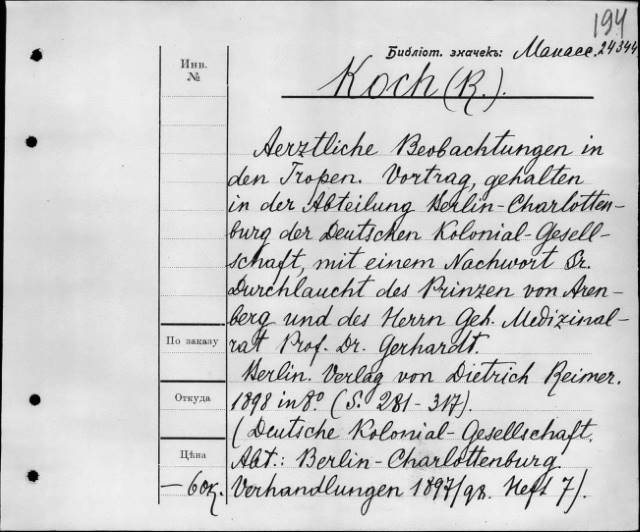 194
Библіот. значекъ: Манасс. 24344
Инв.
№
Koch (R.).
Aerztliche Beobachtungen in
den Tropen. Vortrag, gehalten
in der Abteilung Berlin-Charlotten-
burg der Deutschen Kolonial-Gesell-
schaft, mit einem Nachwort Sr.
Durchlaucht des Prinzen von Aren-
berg und des Herrn Geh. Medizinal-
По заказу
rat Prof. Dr. Gerhardt.
Berlin. Verlag von Dietrich Reimer.
Откуда
1898 in 8º. (S. 281-317).
(Deutsche Kolonial-Gesellschaft.
Цѣна
Abt.: Berlin-Charlottenburg.
— 60к.
Verhandlungen 1897/98. Heft 7).